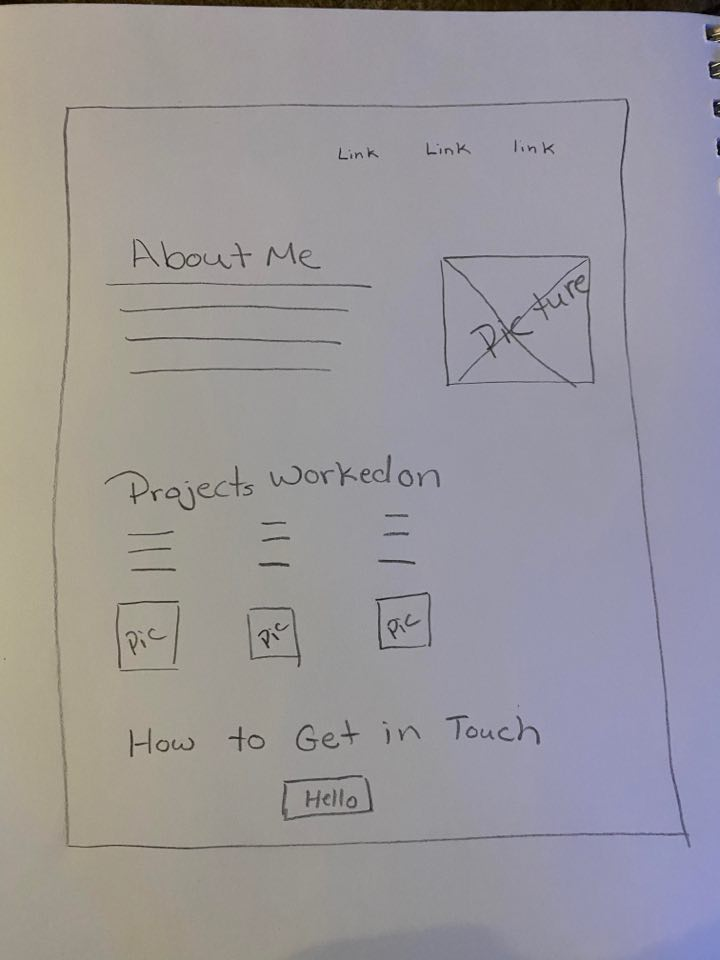 Link Link link
About Me
Picture
Projects Worked on
Pic Pic Pic
How to Get in Touch
Hello